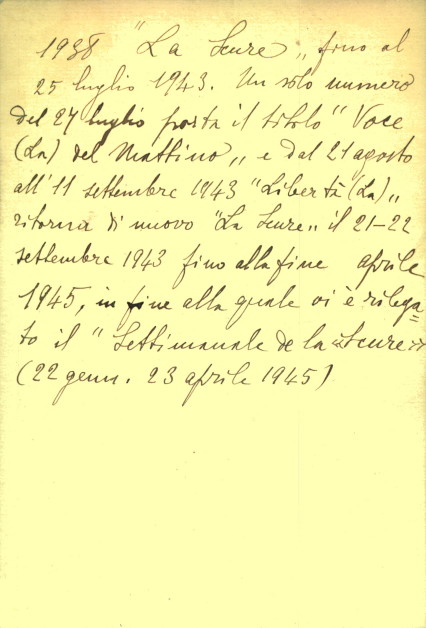 1938 "La Scure„ fino al
25 luglio 1943. Un solo numero
del 27 luglio porta il titolo "Voce
(La) del Mattino„ e dal 21 agosto
all'11 settembre 1943 "Libertà (La)„
ritorna di nuovo "La Scure„ il 21-22
settembre 1943 fino alla fine aprile
1945, in fine alla quale vi è rilega=
to il "Settimanale de la «Scure»
(22 genn. 23 aprile 1945)